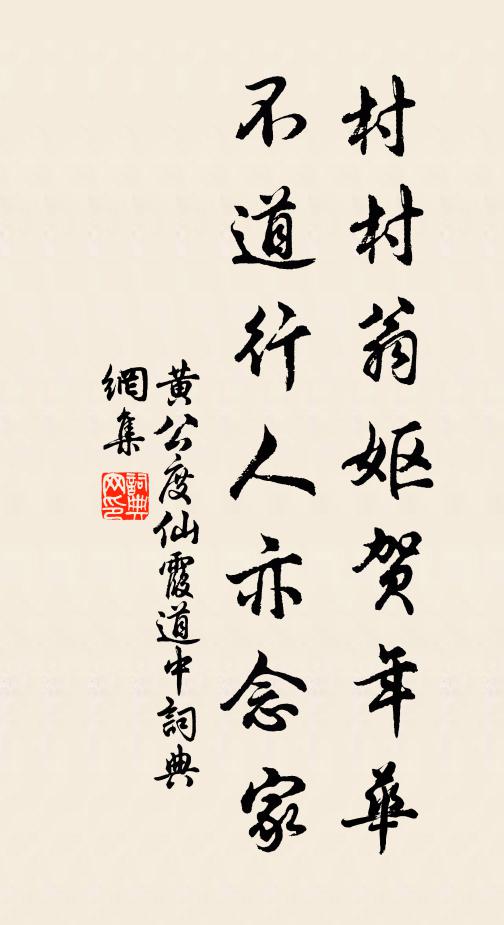 村村翁妪贺年華
不道行人亦念家
黄公度仙霞道中詞典
網集
詞典
网印